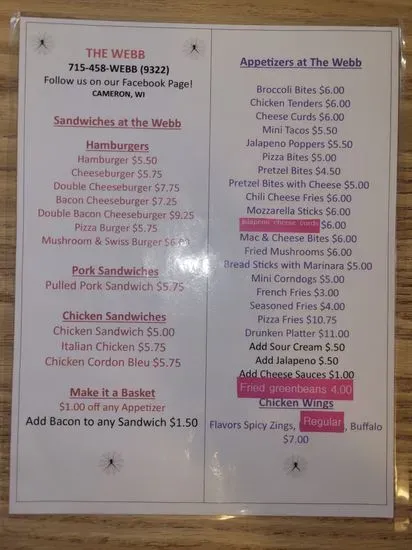 THE WEBB
715-458-WEBB (9322)
Follow us on our Facebook Page!
CAMERON, WI
Sandwiches at the Webb
Hamburgers
Hamburger $5.50
Cheeseburger $5.75
Double Cheeseburger $7.75
Bacon Cheeseburger $7.25
Double Bacon Cheeseburger $9.25
Pizza Burger $5.75
Mushroom & Swiss Burger $6.00
Pork Sandwiches
Pulled Pork Sandwich $5.75
Chicken Sandwiches
Chicken Sandwich $5.00
Italian Chicken $5.75
Chicken Cordon Bleu $5.75
Make it a Basket
$1.00 off any Appetizer
Add Bacon to any Sandwich $1.50
Appetizers at The Webb
Broccoli Bites $6.00
Chicken Tenders $6.00
Cheese Curds $6.00
Mini Tacos $5.50
Jalapeno Poppers $5.50
Pizza Bites $5.00
Pretzel Bites $4.50
Pretzel Bites with Cheese $5.00
Chili Cheese Fries $6.00
Mozzarella Sticks $6.00
Jalapeno cheese curds $6.00
Mac & Cheese Bites $6.00
Fried Mushrooms $6.00
Bread Sticks with Marinara $5.00
Mini Corndogs $5.00
French Fries $3.00
Seasoned Fries $4.00
Pizza Fries $10.75
Drunken Platter $11.00
Add Sour Cream $.50
Add Jalapeno $.50
Add Cheese Sauces $1.00
Fried greenbeans 4.00
Chicken Wings
Flavors Spicy Zings, Regular, Buffalo
$7.00